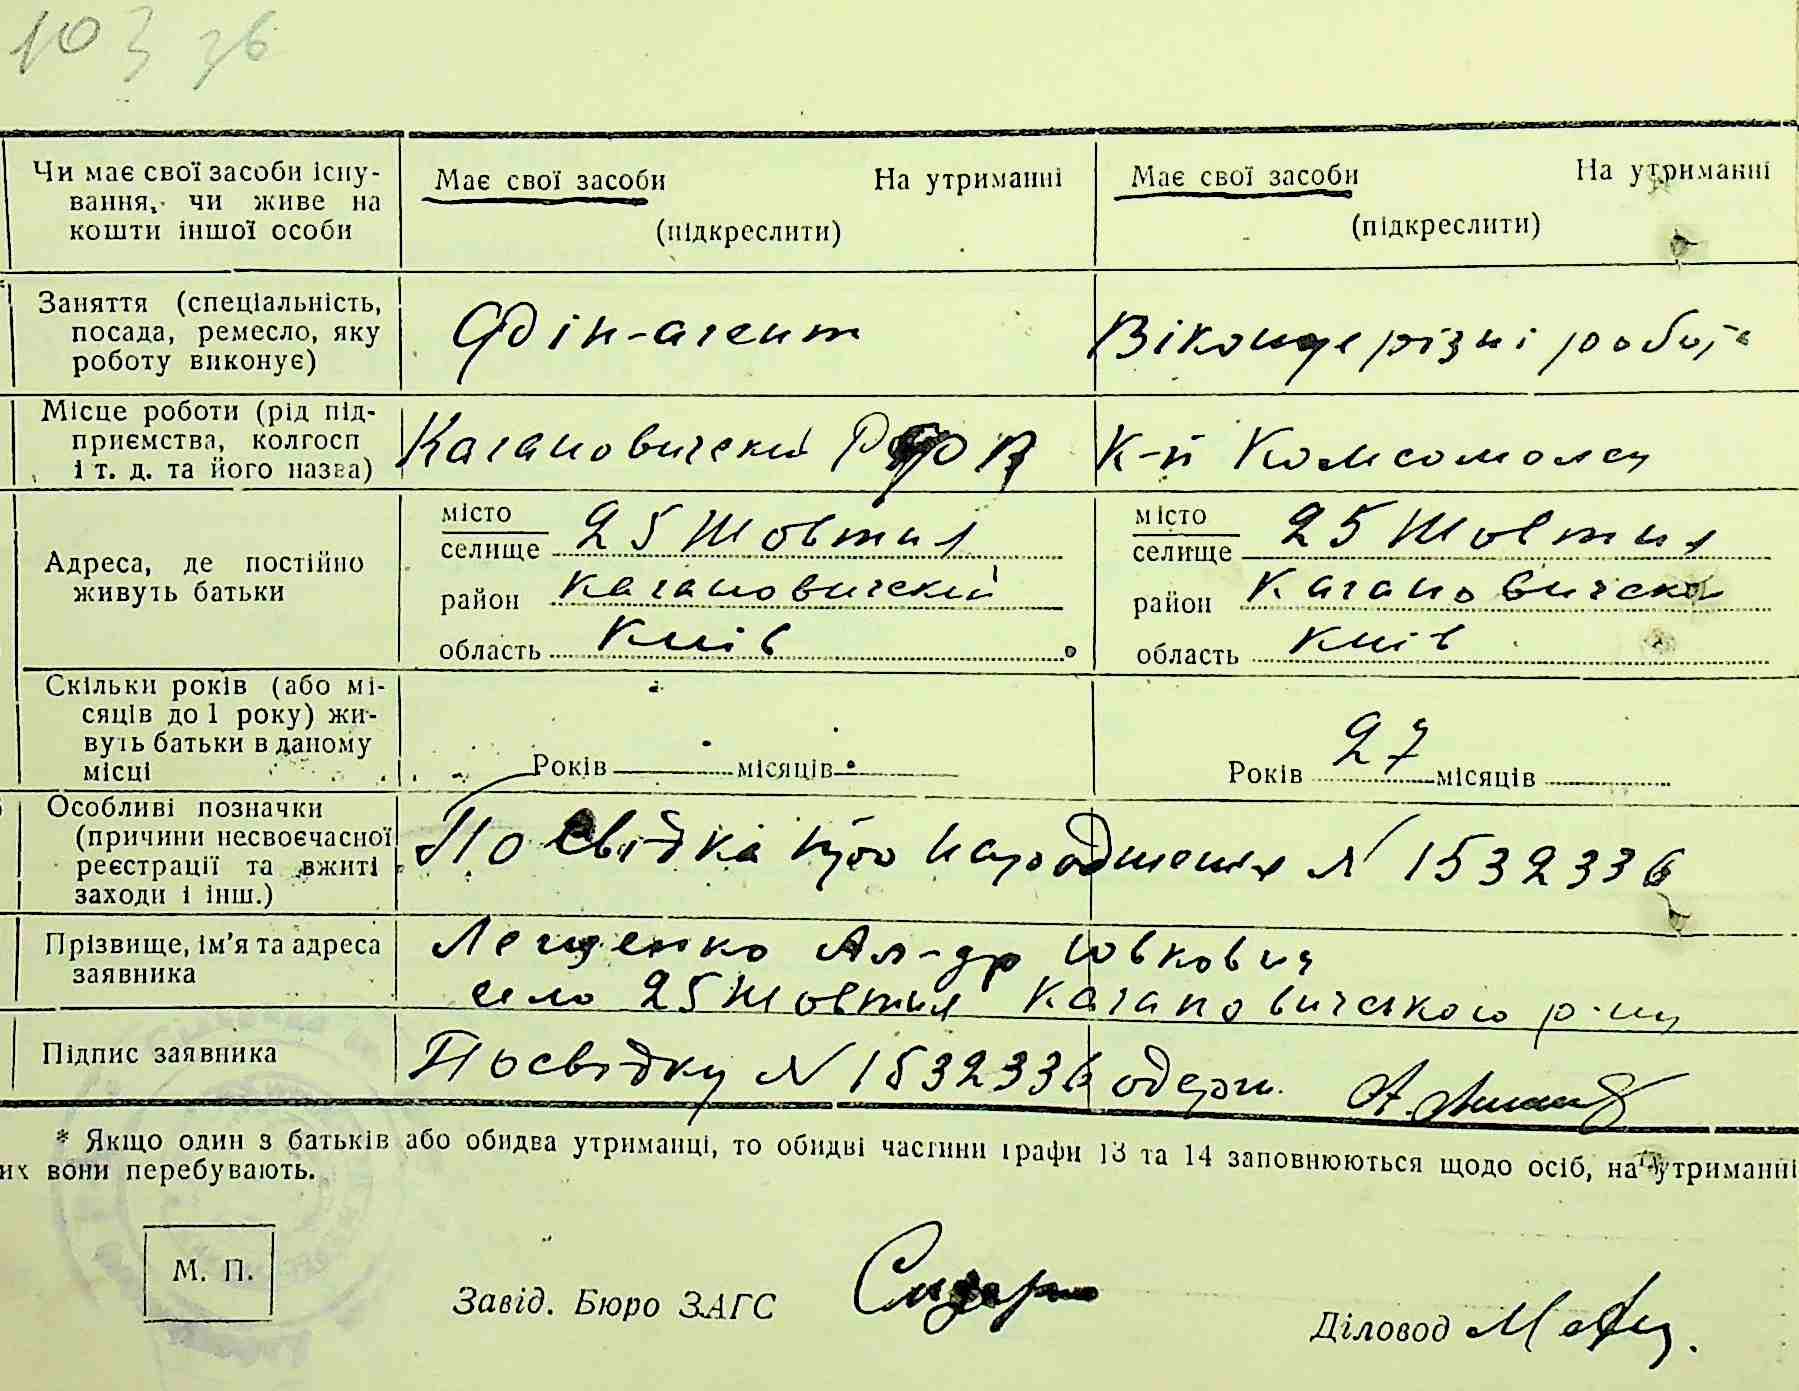 103 36
Чи має свої засоби існу- Має свої засоби На утриманні Має свої засоби На утриманні
вання, чи живе на
кошти іншої особи (підкреслити) (підкреслити)
Заняття (спеціальність,
посада, ремесло, яку Фін-агент різні
роботу виконує)
Місце роботи (рід під-
приємства, колгосп Кагановический К-п Комсомолец
і т. д. та його назва)
місто місто
селище 25 Жовтня селище 25 Жовтня
Адреса, де постійно
живуть батьки район Кагановичский район Кагановичск
область Київ область Київ
Скільки років (або мі-
сяців до 1 року) жи-
вуть батьки в даному
місці Років місяців Років 27 місяців
Особливі позначки
(причини несвоєчасної Посвідка про народження № 1532336
реєстрації та вжиті
заходи і інш.)
Прізвище, ім'я та адреса Лещенко Ал-др
заявника село 25 Жовтня Кагановичського р-ну
Підпис заявника Посвідку № 1532336 одерж.
* Якщо один з батьків або обидва утриманці, то обидві частини графи 13 та 14 заповнюються щодо осіб, на утриманні
их вони перебувають.
М. П.
Завід. Бюро ЗАГС
Діловод